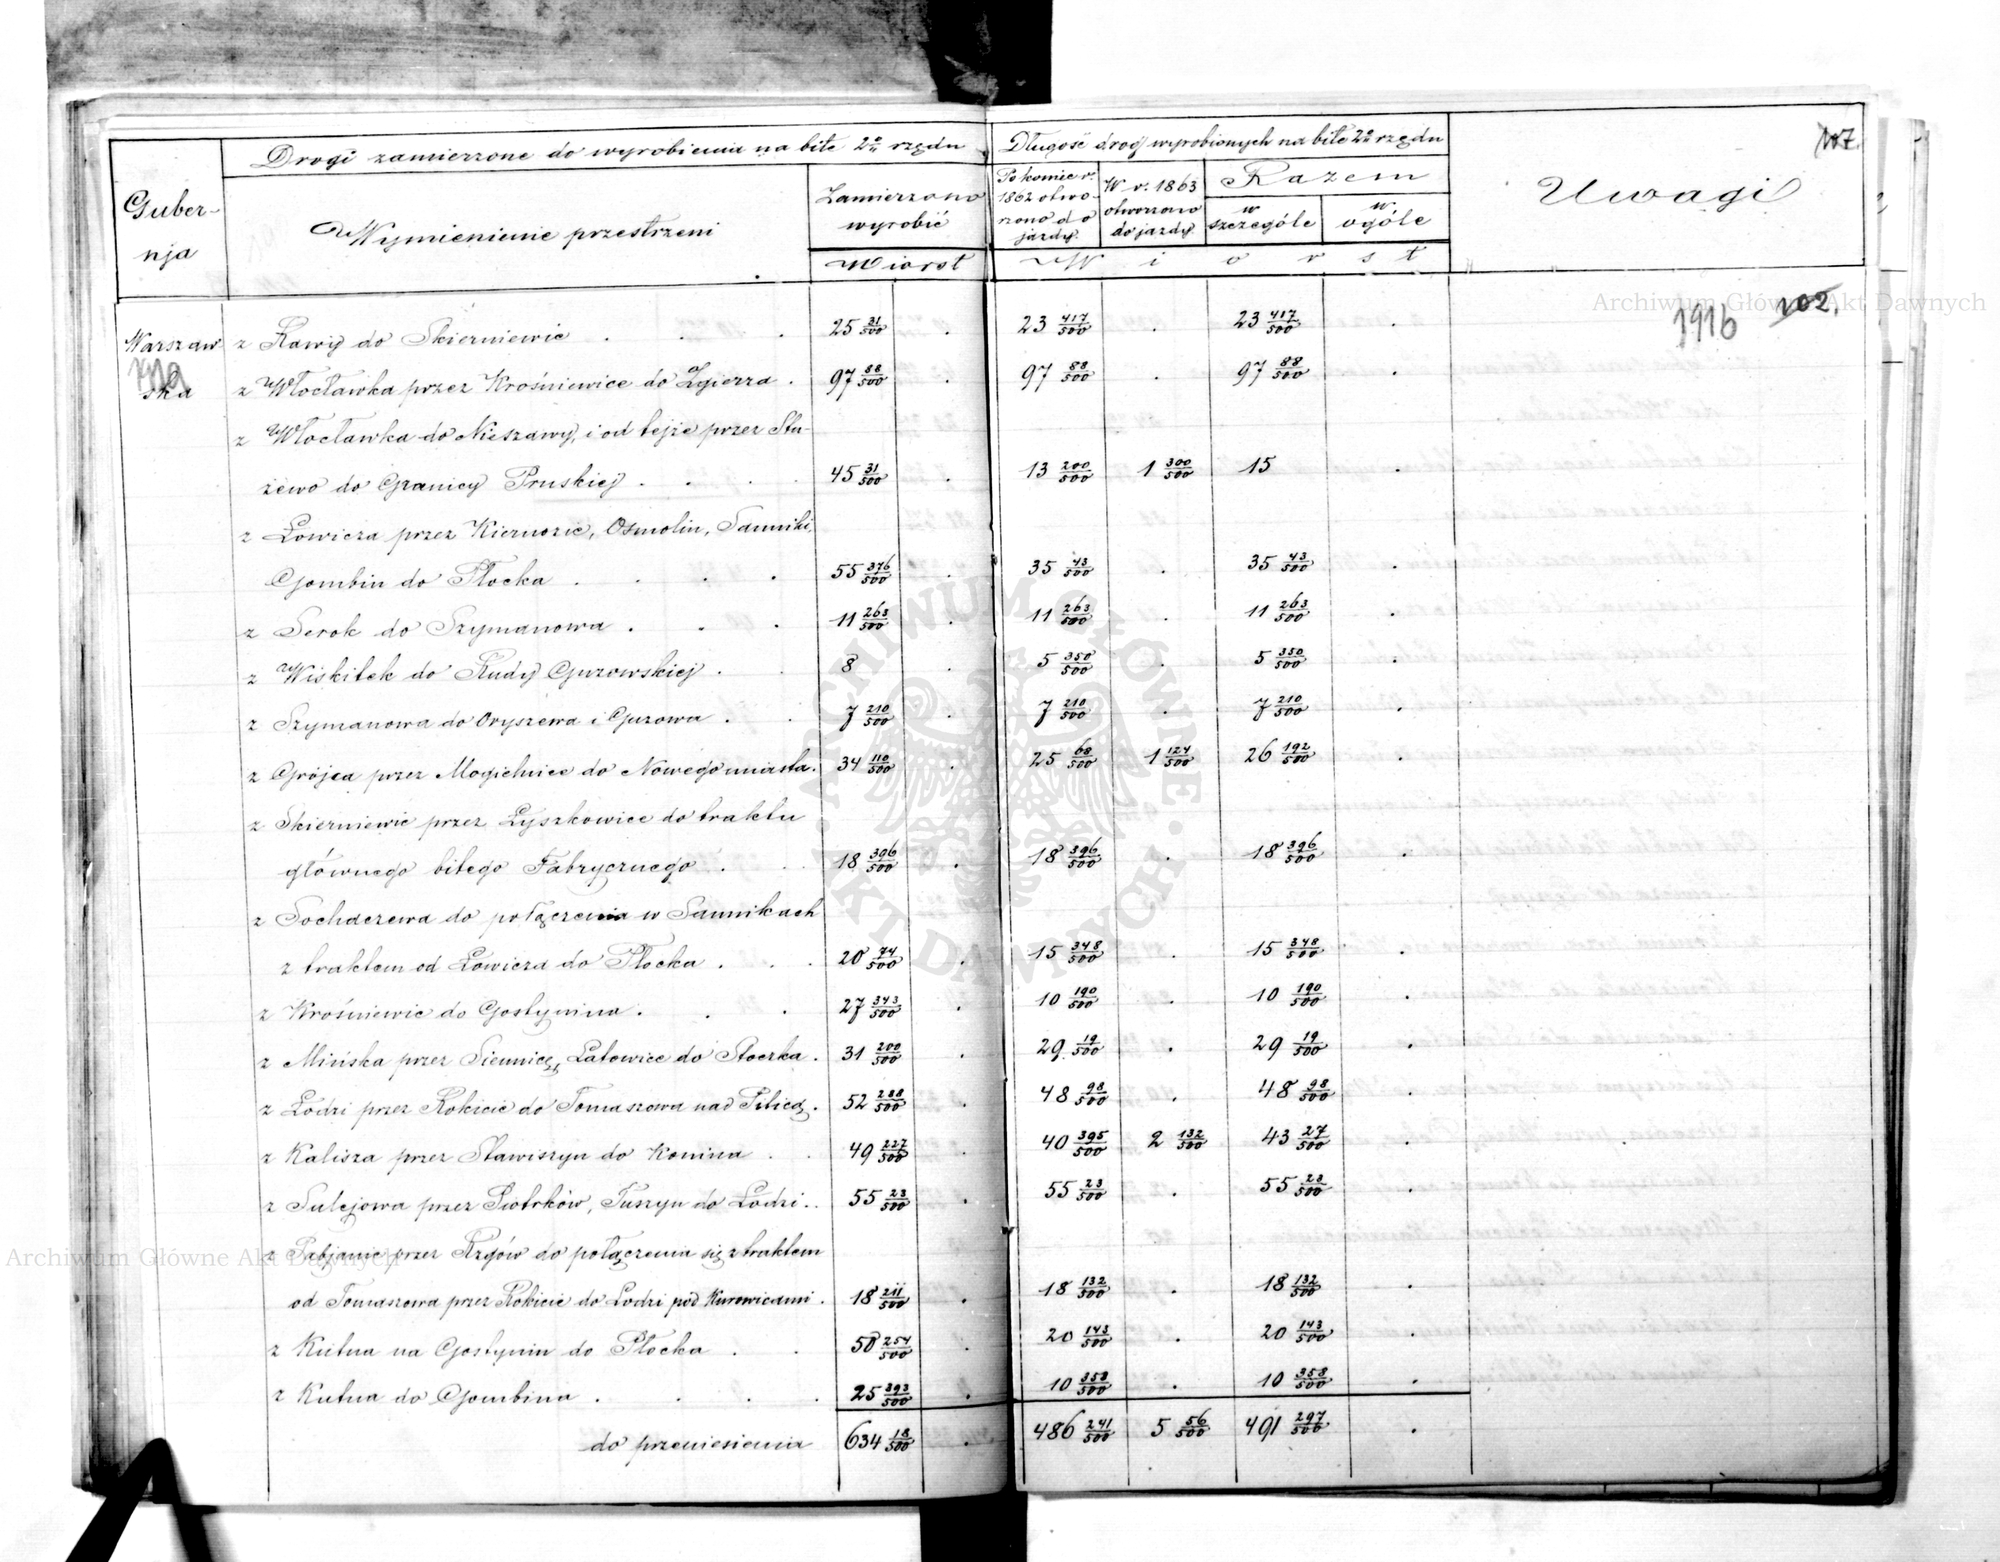 Drogi zamierzone do wyrobienia na bite 2o rzędu
Długość dróg wyrobionych na bite 2o rzędu
107.
Guber-
nja
Wymienienie przestrzeni
Zamierzono
wyrobić
Wiorst
Po koniec r.
1862 otwo-
rzono do
jazdy.
W r. 1863
otworzono
do jazdy.
Razem
w
szczególe
w
ogóle
W i o r s t
Uwagi
Archiwum Główne Akt Dawnych
102.
1916
Warszaw
ska
z Rawy do Skierniewic . . . 25 31/500 . 23 417/500 . 23 417/500 .
z Włocławka przez Krośniewice do Zgierza . 97 88/500 . 97 88/500 . 97 88/500 .
z Włocławka do Nieszawy, i od tejże przez Słu-
żewo do Granicy Pruskiej . . . . 45 31/500 . 13 200/500 1 300/500 15 .
z Łowicza przez Kiernozie, Osmolin, Sanniki,
Gombin do Płocka . . . . 55 376/500 . 35 43/500 . 35 43/500 .
z Serok do Szymanowa . . . 11 263/500 . 11 263/500 . 11 263/500 .
z Wiskitek do Rudy Guzowskiej . . 8 . 5 350/500 . 5 350/500 .
z Szymanowa do Oryszewa i Guzowa . . 7 210/500 . 7 210/500 . 7 210/500 .
z Grójca przez Mogielnice do Nowego miasta . 34 110/500 . 25 68/500 1 124/500 26 192/500 .
z Skierniewic przez Łyszkowice do traktu
głównego bitego Fabrycznego . . 18 396/500 . 18 396/500 . 18 396/500 .
z Sochaczewa do połączenia w Sannikach
z traktem od Łowicza do Płocka . . . 20 74/500 . 15 348/500 . 15 348/500 .
z Krośniewic do Gostynina . . . 27 343/500 . 10 190/500 . 10 190/500 .
z Mińska przez Siennicę, Latowice do Stoczka . 31 200/500 . 29 19/500 . 29 19/500 .
z Łódzi przez Rokicie do Tomaszowa nad Pilicą . 52 288/500 . 48 98/500 . 48 98/500 .
z Kalisza przez Stawiszyn do Konina . . 49 227/500 . 40 395/500 2 132/500 43 27/500 .
z Sulejowa przez Piotrków, Tuszyn do Łodzi . . 55 23/500 . 55 23/500 . 55 23/500 .
z Pabjanic przez Rzgów do połączenia się z traktem
Archiwum Główne Akt Dawnych
od Tomaszowa przez Rokicie do Łodzi pod Kurowicami . 18 211/500 . 18 132/500 . 18 132/500 .
z Kutna na Gostynin do Płocka . . 50 254/500 . 20 143/500 . 20 143/500 .
z Kutna do Gombina . . . . 25 393/500 . 10 358/500 . 10 358/500 .
do przeniesienia 634 18/500 . 486 241/500 5 56/500 491 297/500 .
ARCHIWUM GŁÓWNE · AKT DAWNYCH ·